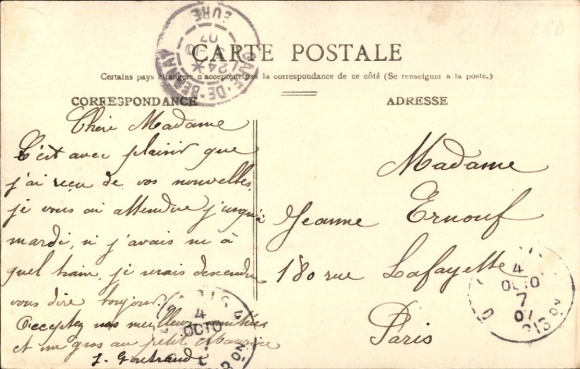 CARTE POSTALE
Certains pays étrangers n'acceptent pas la correspondance de ce côté (Se renseigner à la poste.)
CORRESPONDANCE
Chère Madame
C'est avec plaisir que
j'ai reçu de vos nouvelles,
je vous ai attendue jusqu'à
mardi, si j'avais su à
quel train, je serais descendu
vous dire bonjour.
Acceptez nos meilleures amitiés
et un gros au petit Maurice
ADRESSE
Madame
Jeanne Ernouf
180 rue Lafayette
Paris
GARE-DE-BERNAY
EURE
07
4
OCTO
7
07
4
OCTO